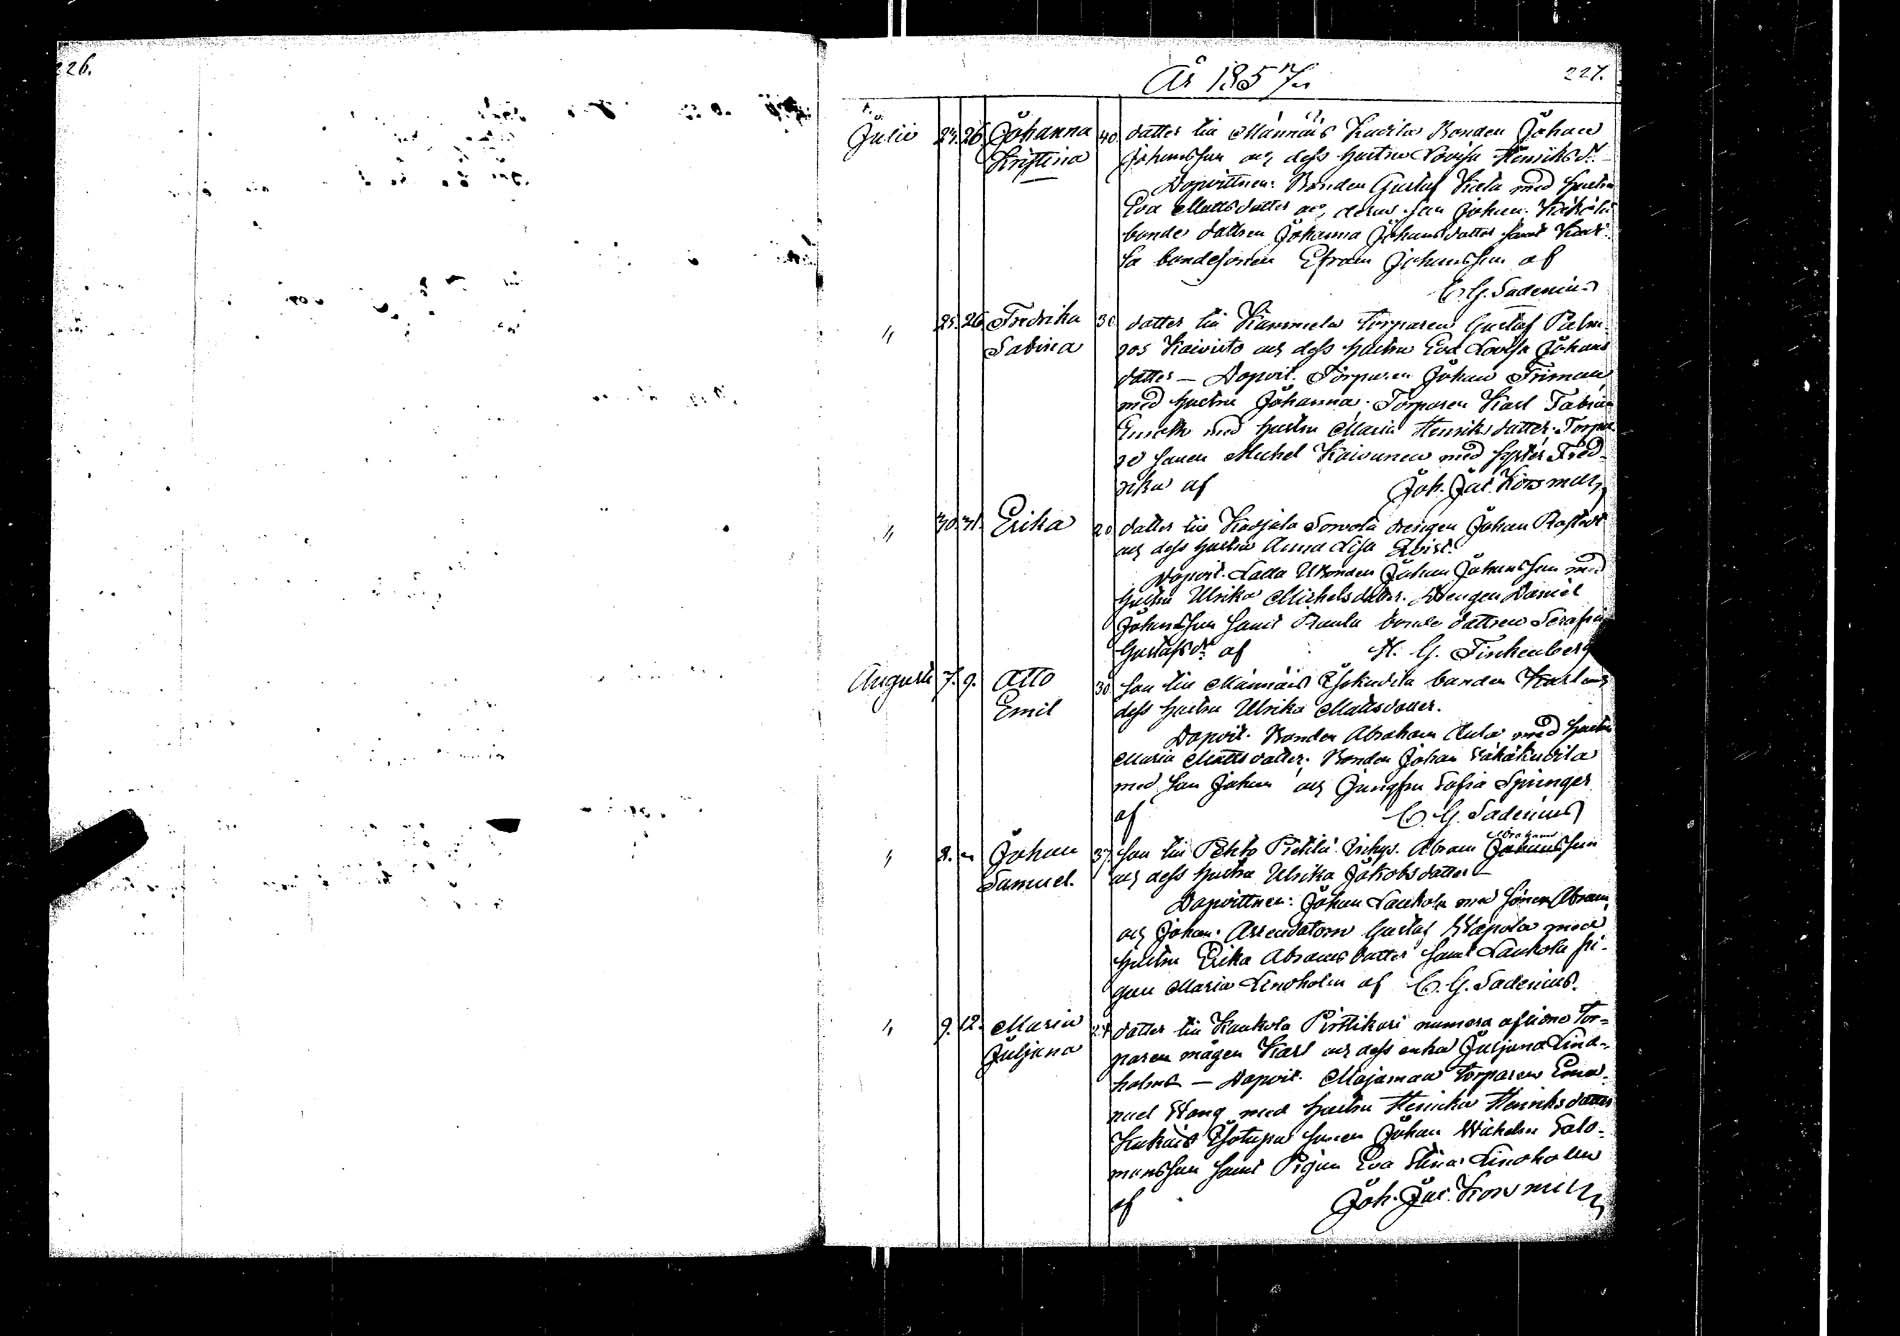 226.
227.
År 1857.
Julii 24. 26. Johanna 40. dotter till Männäis Kuvila Bonden Johan
Kristina Johansson och dess hustru Lovisa Henriksdr
Dopvittnen: Bonden Gustaf med hustru
Eva Mattsdotter och deras son Johan.
bonde dottren Johanna Johansdotter samt
bondesonen Efraim Johansson af
C. G. Sadenius
" 25. 26. Fredrika 30. dotter till Kammela torparen Gustaf
Sabina Koivisto och dess hustru Eva Lovisa Johans
dotter — Dopvit. Torparen Johan Friman
med hustru Johanna. Torparen Karl Fabian
med hustru Maria Henriksdotter. Torpa
re sonen Michel Koivunen med syster Fred-
rika af Joh. Jac. Kossman
" 30. 31. Erika 20 dotter till Karjala Sorvola drengen Johan
och dess hustru Anna Lisa Qvist.
Dopvit. Bonden Johan Johansson med
hustru Ulrika Michelsdotter. Drengen Daniel
Johansson samt bonde dottren Serafina
Gustafsdr af H. G. Finkenberg
Augusti 7. 9. Otto 30. son till Männäis bonden Karl och
Emil dess hustru Ulrika Mattsdotter.
Dopvit. Bonden Abraham med hustru
Maria Mattsdotter. Bonden Johan
med son Johan och Jungfru Sofia Springer
af C. G. Sadenius
" 8. " Johan 37. son till Pehto Abram Johansson
Abrahams
Samuel. och dess hustru Ulrika Jakobsdotter —
Dopvittnen: Johan Laukola med sönen Abram
och Johan. Arrendatorn Gustaf med
hustru Erika Abramsdotter samt Laukola pi-
gan Maria Lindholm af C. G. Sadenius.
" 9. 12. Maria 24 dotter till Kaukola Pirttikari numera aflidne Tor-
Juljana paren mågen Karl och dess enka Juljana Lind-
holm — Dopvit. Majamaa torparen Ema-
nuel Wang med hustru Henrika Henriksdotter
sonen Johan Wilhelm Salo-
monsson samt Pigan Eva Stina Lindholm
af Joh. Jac. Kossman